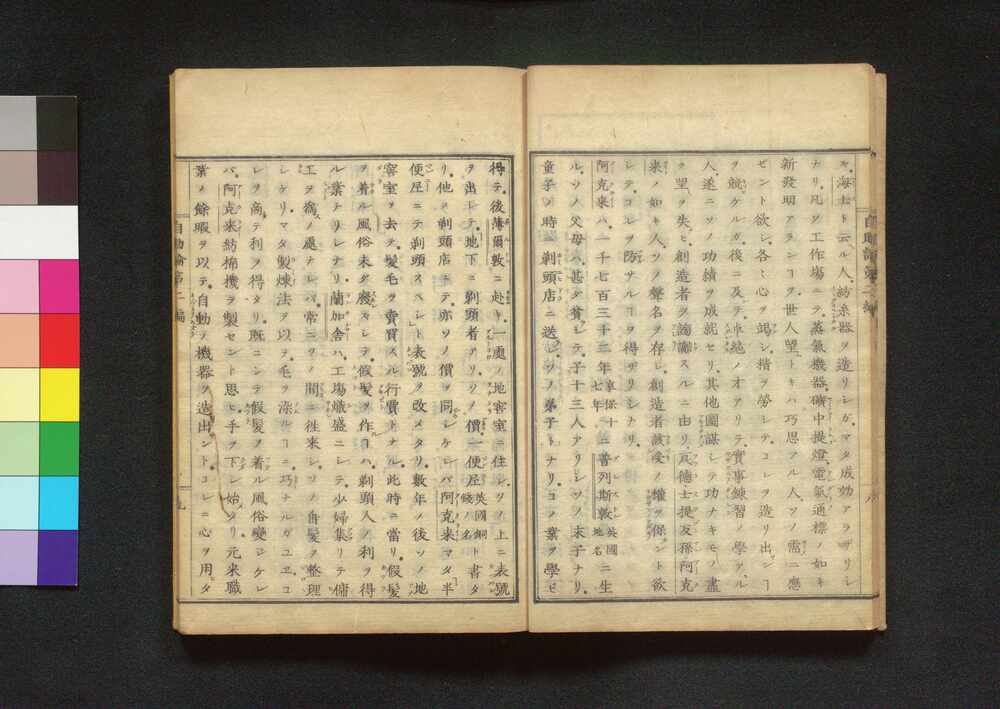 キ。海士ト云ル人紡糸器ヲ造リシガ。マタ成功アラザリシ
ナリ。凡ソ工作場ニテ。蒸氣機器。礦中提燈。電氣通標ノ如キ
新發明アランヿヲ世人望トキハ巧思アル人ソノ需ニ應
ゼント欲シ。各〻心ヲ竭シ精ヲ勞シテ。コレヲ造リ出シヿ
ヲ競ケルガ。後ニ及テ卓絶ノオアリテ實事練習ノ學アル
人。遂ニソノ功績ヲ成就セリ。其他圖謀シテ功ナキモノ盡
ク望ヲ失ヒ。創造者ヲ詢謝スルニ由リ。瓦德士提反孫阿克
來ノ如キ人。ソノ聲名ヲ存シ。創造者該受ノ權ヲ保ント欲
シテ。コレヲ防ザルヿヲ得ザリシナリ。
阿克來ハ。一千七百三十二年享保十七年普列斯敦英國地名ニ生
ル。ソノ父母ハ。甚タ貧シテ。子十三人アリシソノ末子ナリ。
童子ノ時。剃頭店ニ送ラレ。ソノ弟子トナリ。コノ業ヲ學ビ
得テ。後薄爾敦ニ赴キ。一處ノ地窖室ニ住シ。ソノ上ニ表號
ヲ出シテ。地下ニ剃頭者アリ。ソノ價一便尼英國銅錢ノ名ト書タ
リ。他ノ剃頭店ニテ。亦ソノ價ヲ同シケレバ阿克來マタ半
便尼ニテ剃頭スベシト表號ヲ改メタリ。數年ノ後ソノ地
窖室ヲ去テ。髮毛ヲ賣買スル行賈トナル。此時ニ當リ。假髮
ヲ着ル風俗未タ癈ズシテ。假髮ヲ作ルヿハ。剃頭人ノ利ヲ得
ル業ナリシナリ。蘭加舍ハ。工場熾盛ニシテ。少婦集リテ傭
工ヲ爲ノ處ナレバ。常ニソノ間ニ徃來シ。ソノ角髮ヲ整理
シケリ。マタ製煉法ヲ以テ。毛ヲ染ルヿニ巧ナルガユヱ。コ
レヲ商テ利ヲ得タリ。既ニシテ假髮ヲ着ル風俗變ジケレ
バ。阿克來紡棉機ヲ製セント思ヒ。手ヲ下シ始タリ。元來職
業ノ餘暇ヲ以テ。自動ノ機器ヲ造出ント。コレニ心ヲ用タ
自助論第二編
九